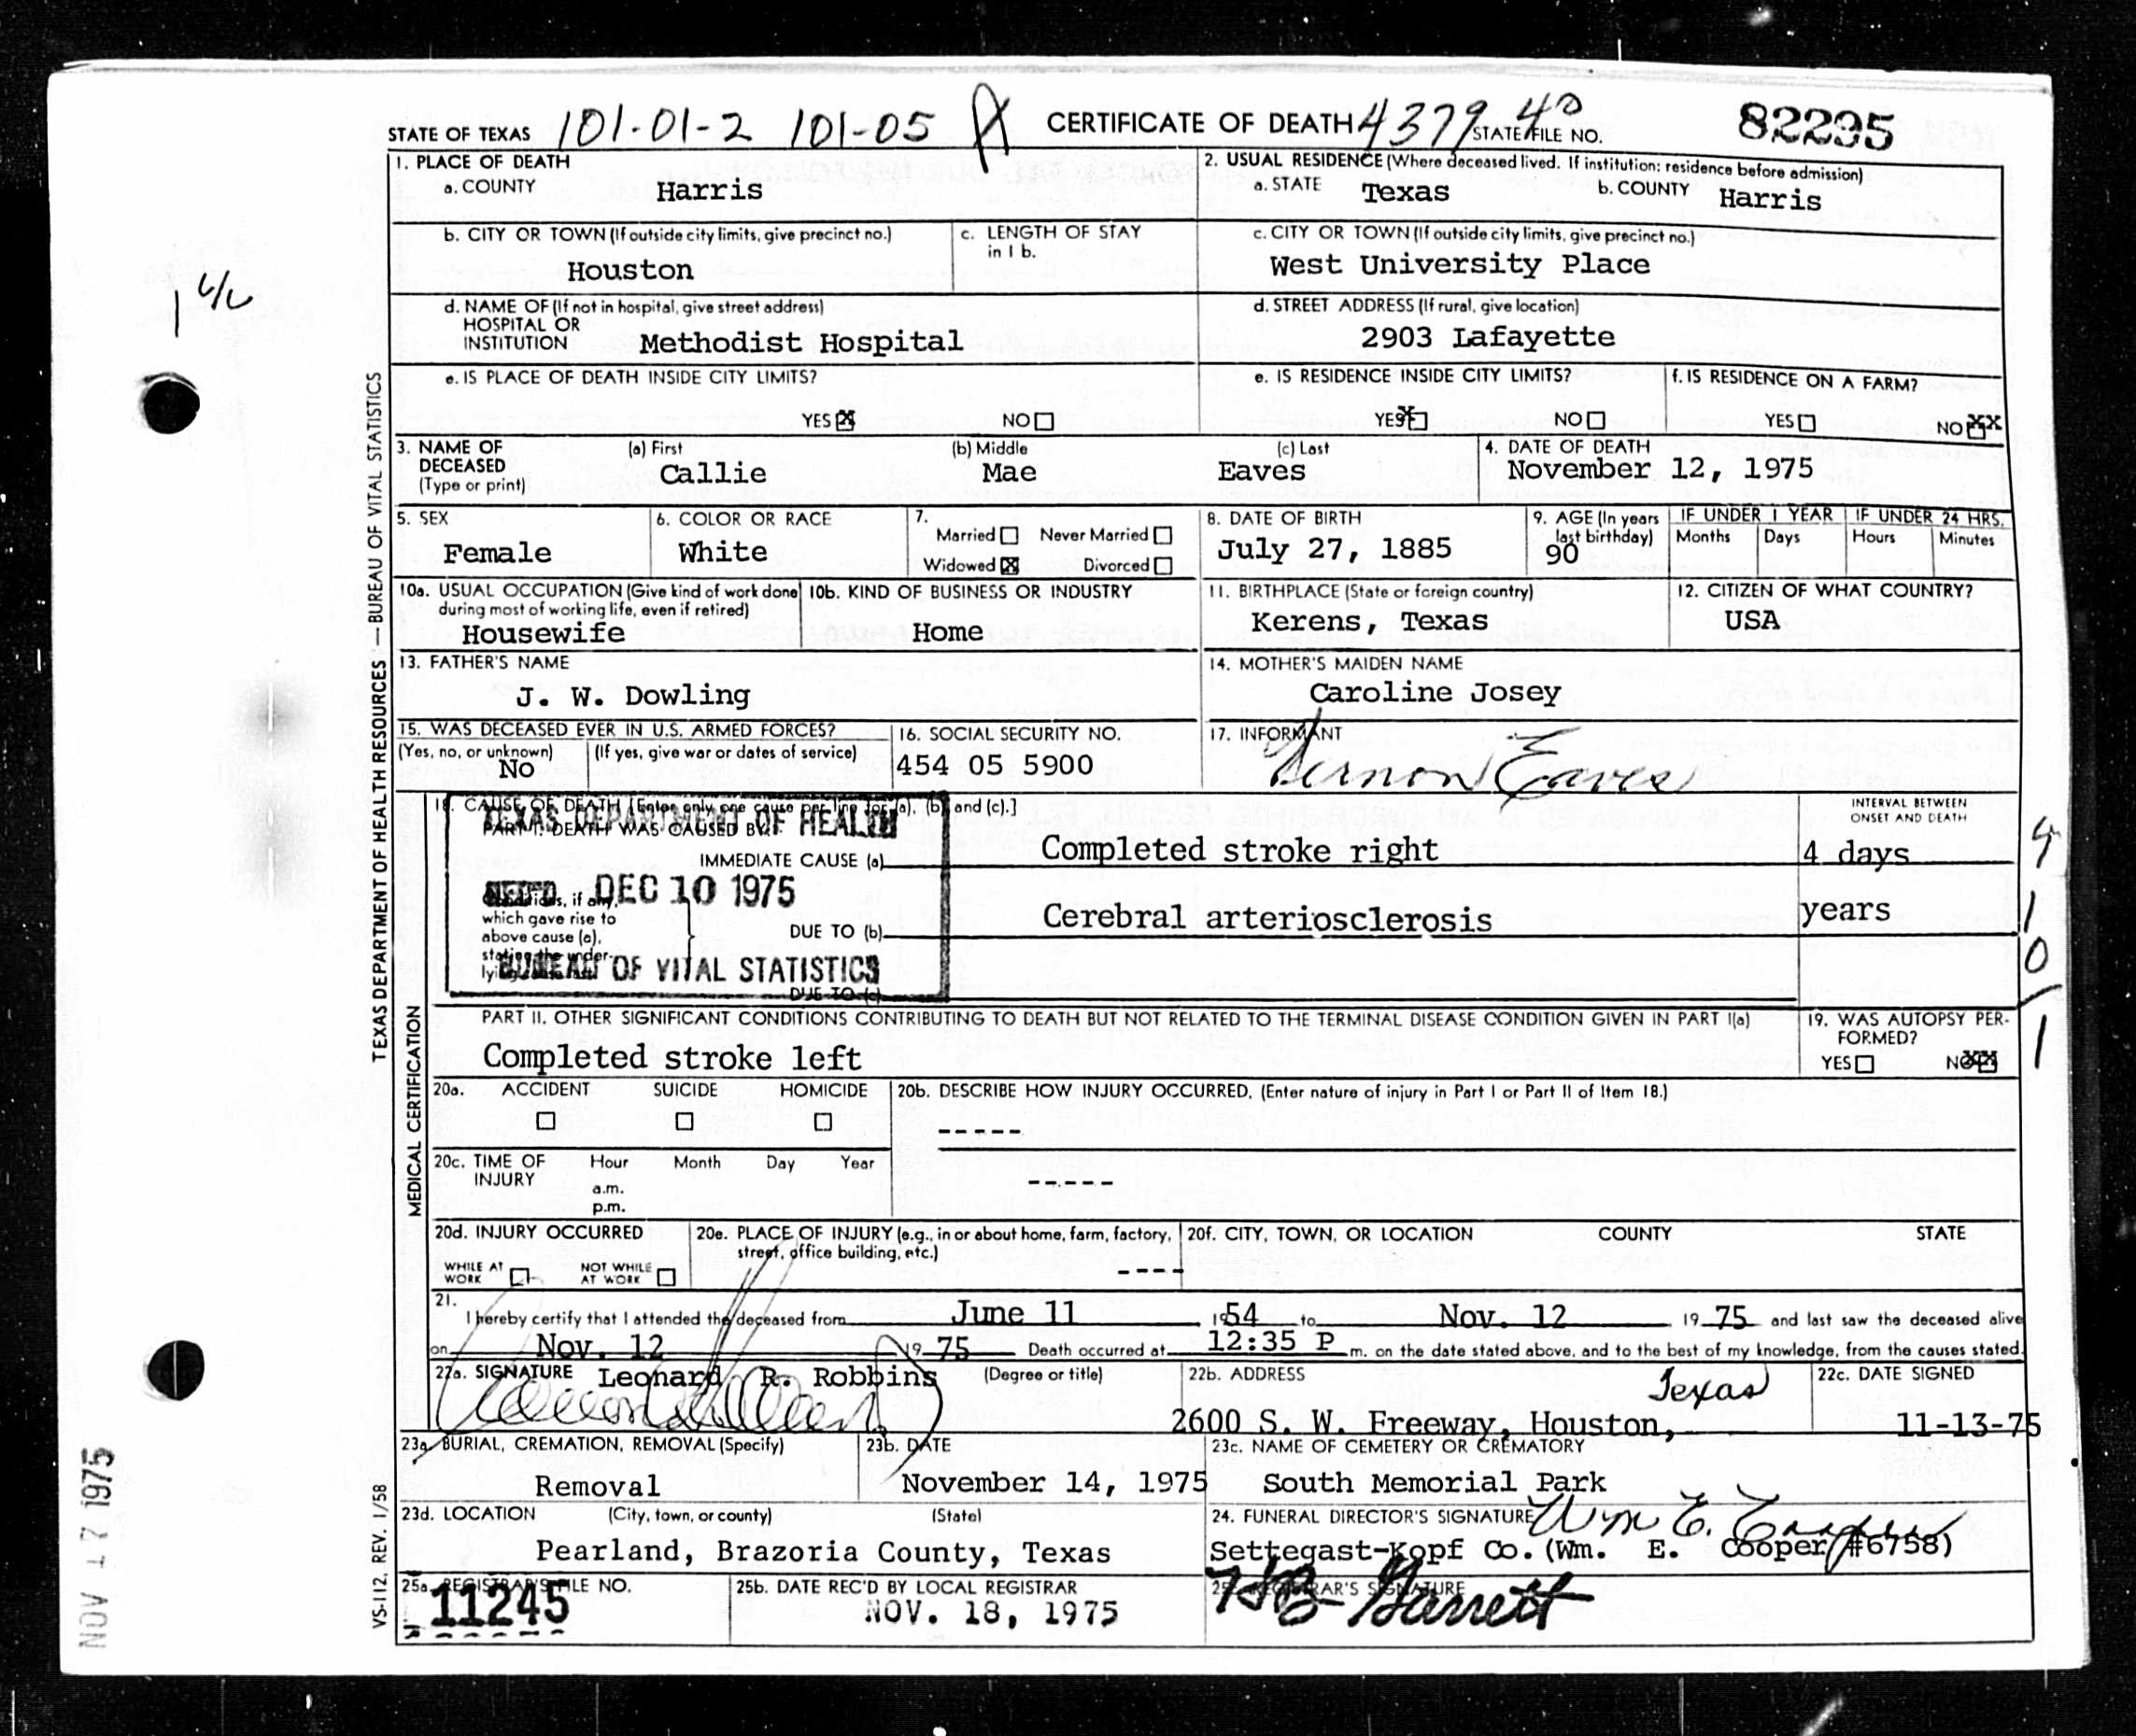 STATE OF TEXAS 101-01-2 101-05 CERTIFICATE OF DEATH 4379 40 STATE FILE NO. 82295
1. PLACE OF DEATH
a. COUNTY Harris
2. USUAL RESIDENCE (Where deceased lived. If institution: residence before admission)
a. STATE Texas b. COUNTY Harris
b. CITY OR TOWN (If outside city limits, give precinct no.)
Houston
c. LENGTH OF STAY
in 1 b.
c. CITY OR TOWN (If outside city limits, give precinct no.)
West University Place
d. NAME OF (If not in hospital, give street address)
HOSPITAL OR
INSTITUTION Methodist Hospital
d. STREET ADDRESS (If rural, give location)
2903 Lafayette
e. IS PLACE OF DEATH INSIDE CITY LIMITS?
YES NO
e. IS RESIDENCE INSIDE CITY LIMITS?
YES NO
f. IS RESIDENCE ON A FARM?
YES NO XX
3. NAME OF
DECEASED
(Type or print)
(a) First
Callie
(b) Middle
Mae
(c) Last
Eaves
4. DATE OF DEATH
November 12, 1975
5. SEX
Female
6. COLOR OR RACE
White
7.
Married Never Married
Widowed Divorced
8. DATE OF BIRTH
July 27, 1885
9. AGE (In years
last birthday)
90
IF UNDER 1 YEAR
Months Days
IF UNDER 24 HRS.
Hours Minutes
10a. USUAL OCCUPATION (Give kind of work done
during most of working life, even if retired)
Housewife
10b. KIND OF BUSINESS OR INDUSTRY
Home
11. BIRTHPLACE (State or foreign country)
Kerens, Texas
12. CITIZEN OF WHAT COUNTRY?
USA
13. FATHER'S NAME
J. W. Dowling
14. MOTHER'S MAIDEN NAME
Caroline Josey
15. WAS DECEASED EVER IN U.S. ARMED FORCES?
(Yes, no, or unknown) (If yes, give war or dates of service)
No
16. SOCIAL SECURITY NO.
454 05 5900
17. INFORMANT
Vernon Eaves
18. CAUSE OF DEATH [Enter only one cause per line for (a), (b) and (c).]
PART I. DEATH WAS CAUSED BY:
TEXAS DEPARTMENT OF HEALTH
IMMEDIATE CAUSE (a) Completed stroke right
INTERVAL BETWEEN
ONSET AND DEATH
4 days
DEC 10 1975
Conditions, if any,
which gave rise to
above cause (a),
stating the under-
lying cause last.
DUE TO (b) Cerebral arteriosclerosis
years
BUREAU OF VITAL STATISTICS
DUE TO (c)
PART II. OTHER SIGNIFICANT CONDITIONS CONTRIBUTING TO DEATH BUT NOT RELATED TO THE TERMINAL DISEASE CONDITION GIVEN IN PART I(a)
Completed stroke left
19. WAS AUTOPSY PER-
FORMED?
YES NO
20a. ACCIDENT SUICIDE HOMICIDE
20b. DESCRIBE HOW INJURY OCCURRED. (Enter nature of injury in Part I or Part II of Item 18.)
-----
20c. TIME OF
INJURY
Hour Month Day Year
a.m.
p.m.
-----
20d. INJURY OCCURRED
WHILE AT
WORK
NOT WHILE
AT WORK
20e. PLACE OF INJURY (e.g., in or about home, farm, factory,
street, office building, etc.)
----
20f. CITY, TOWN, OR LOCATION COUNTY STATE
21.
I hereby certify that I attended the deceased from June 11 1954 to Nov. 12 1975 and last saw the deceased alive
on Nov. 12 1975 Death occurred at 12:35 P m. on the date stated above, and to the best of my knowledge, from the causes stated.
22a. SIGNATURE Leonard R. Robbins (Degree or title)
22b. ADDRESS
2600 S. W. Freeway, Houston, Texas
22c. DATE SIGNED
11-13-75
23a. BURIAL, CREMATION, REMOVAL (Specify)
Removal
23b. DATE
November 14, 1975
23c. NAME OF CEMETERY OR CREMATORY
South Memorial Park
23d. LOCATION (City, town, or county) (State)
Pearland, Brazoria County, Texas
24. FUNERAL DIRECTOR'S SIGNATURE Wm E. Cooper
Settegast-Kopf Co. (Wm. E. Cooper #6758)
25a. REGISTRAR'S FILE NO.
11245
25b. DATE REC'D BY LOCAL REGISTRAR
NOV. 18, 1975
25c. REGISTRAR'S SIGNATURE
Garrett
TEXAS DEPARTMENT OF HEALTH RESOURCES — BUREAU OF VITAL STATISTICS
MEDICAL CERTIFICATION
VS-112, REV. 1/58
NOV 17 1975
4
1
0
1